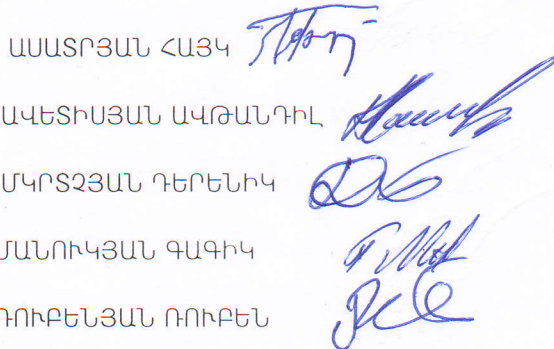 ԱՍԱՏՐՅԱՆ ՀԱՅԿ
ԱՎԵՏԻՍՅԱՆ ԱՎԹԱՆԴԻԼ
ՄԿՐՏՉՅԱՆ ԴԵՐԵՆԻԿ
ՄԱՆՈՒԿՅԱՆ ԳԱԳԻԿ
ՌՈՒԲԵՆՅԱՆ ՌՈՒԲԵՆ